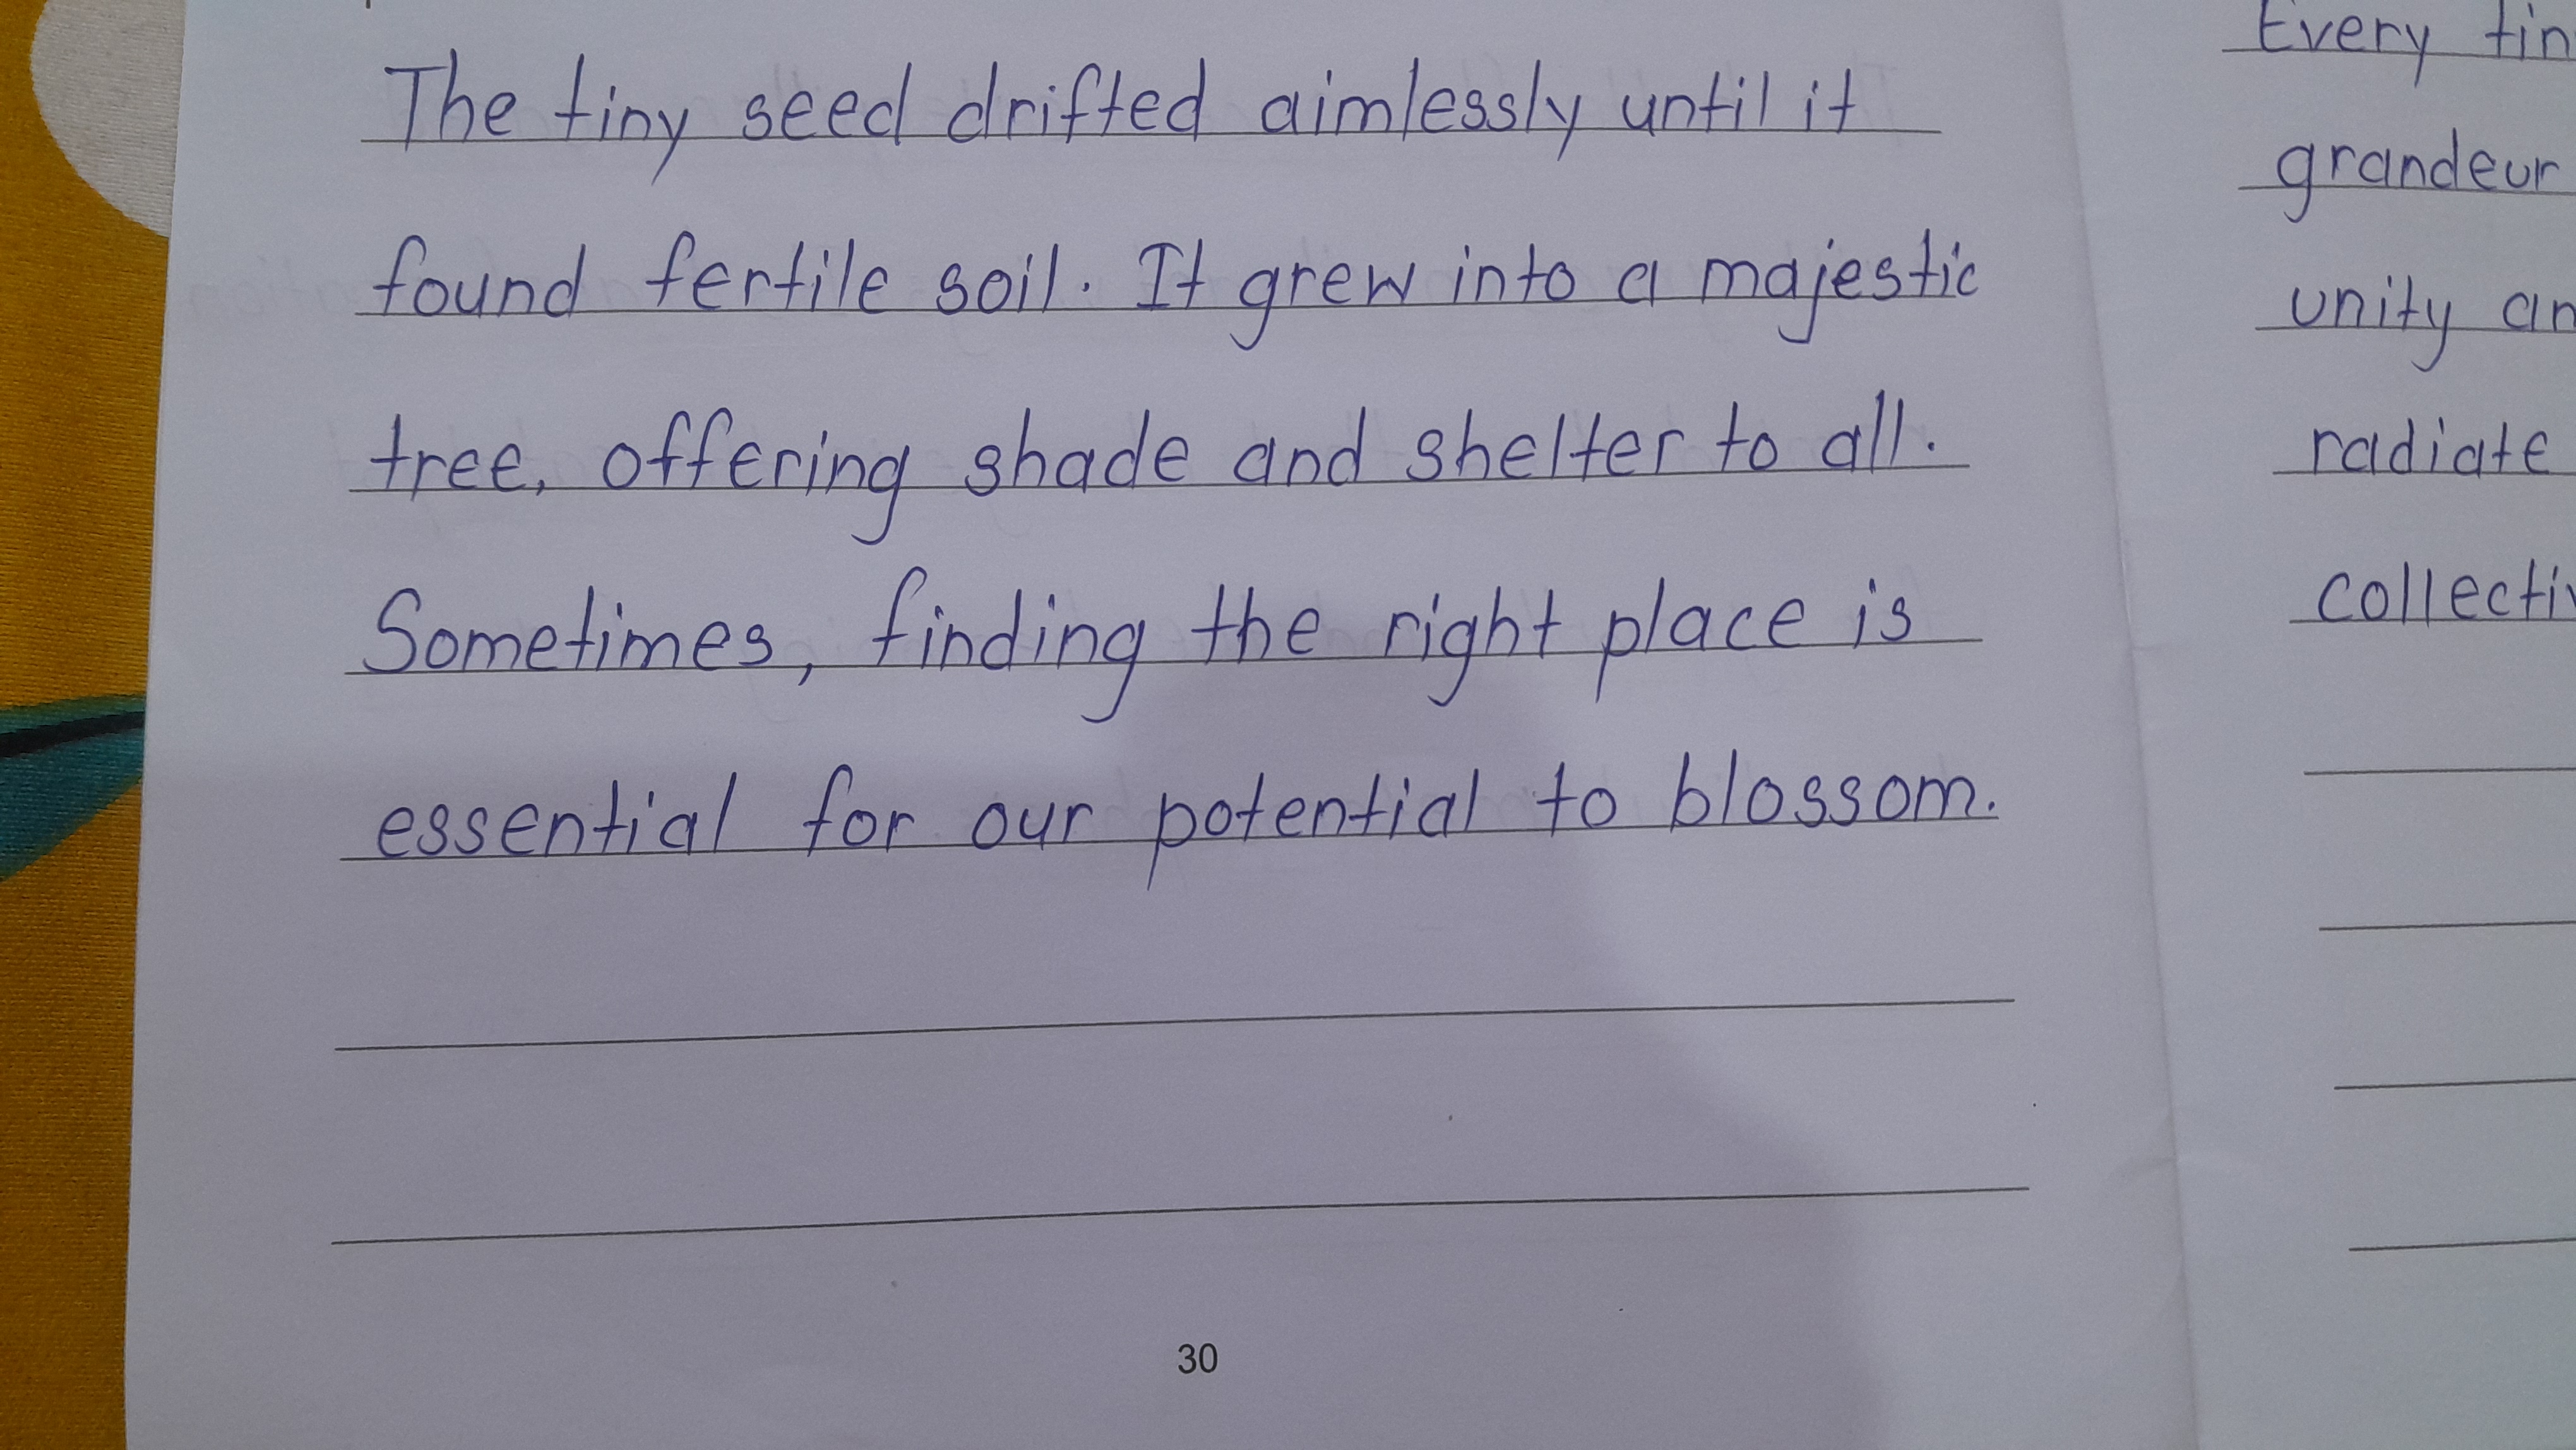 The tiny seed drifted aimlessly until it
found fertile soil. It grew into a majestic
tree, offering shade and shelter to all.
Sometimes, finding the right place is
essential for our potential to blossom.
30
Every
grandeur
unity
radiate